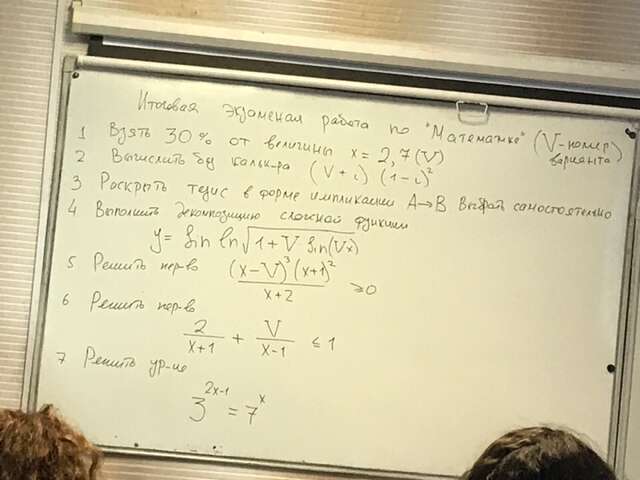 Итоговая экзаменая работа по "Математике" (V-номер варианта)
1 Взять 30% от величины x = 2,7(V)
2 Вычислить без кальк-ра (V+i) (1-i)²
3 Раскрыть тезис в форме импликации A→B Выбрать самостоятельно
4 Выполнить декомпозицию сложной функции
y = sin ln √(1+V sin(Vx))
5 Решить нер-во (x-V)³(x+1)² / (x+2) ≥ 0
6 Решить нер-во
2/(x+1) + V/(x-1) ≤ 1
7 Решить ур-ие
3^(2x-1) = 7^x